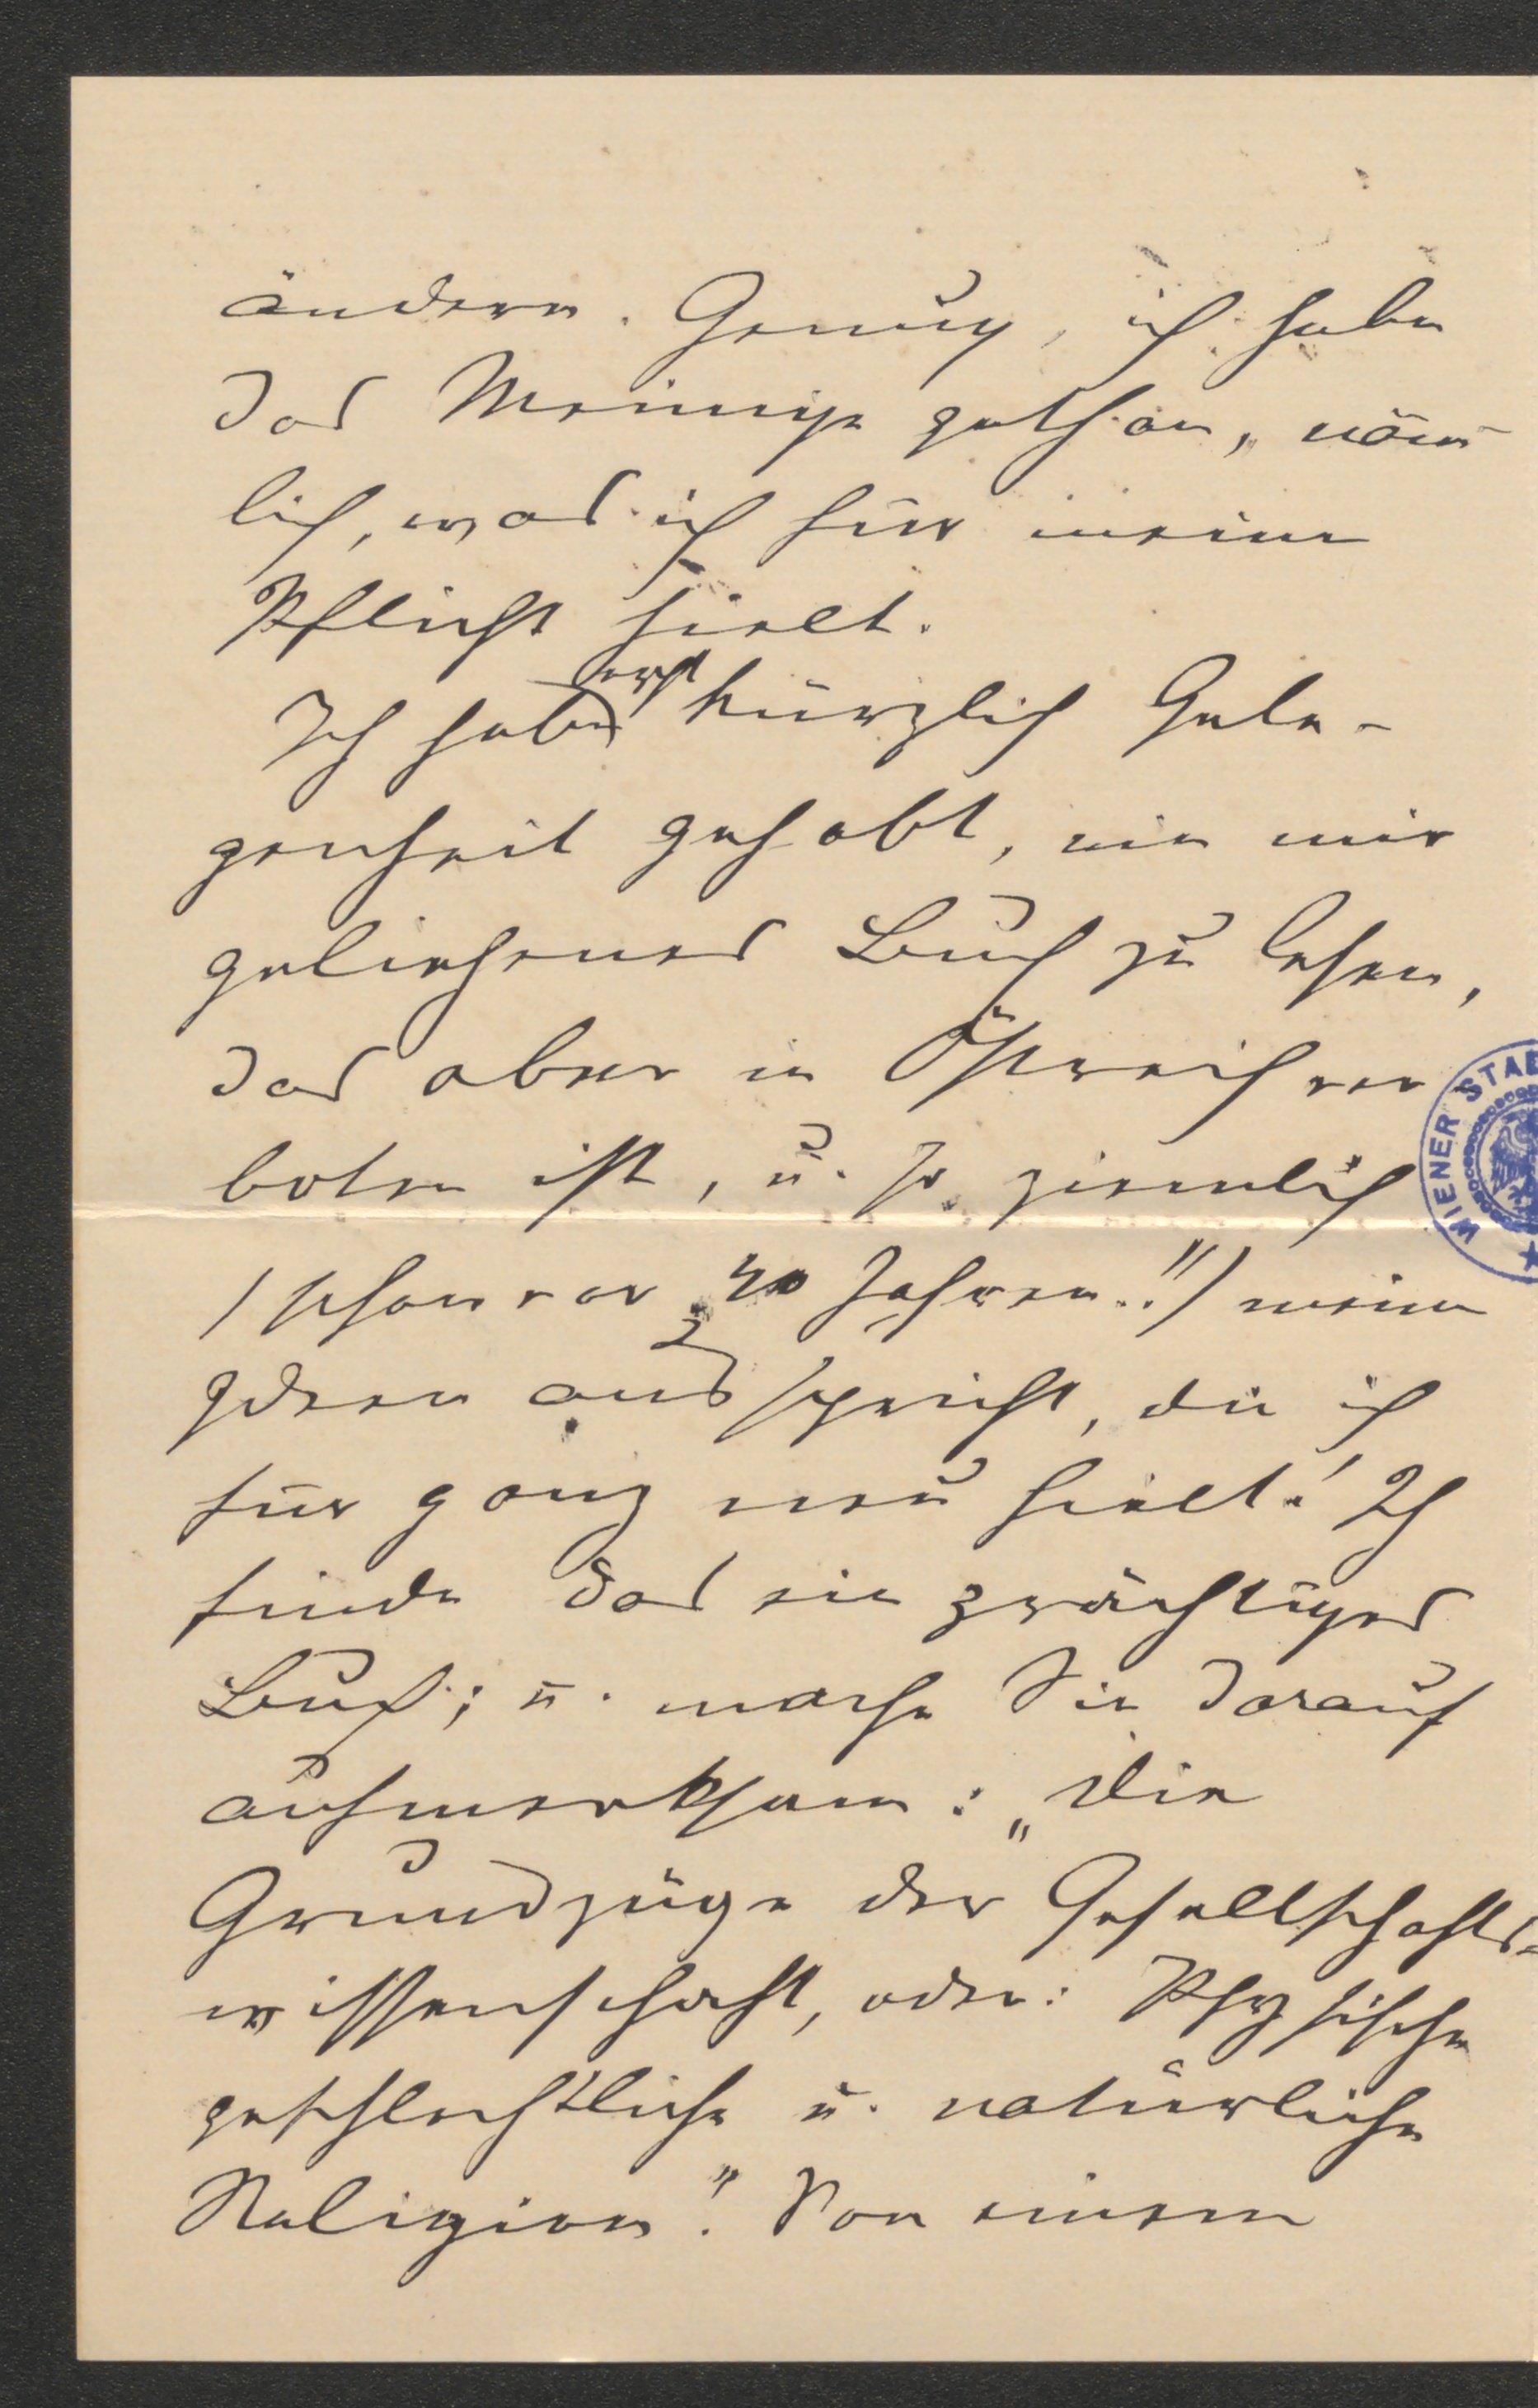 ändern. Genug, ich habe
das Meinige gethan, näm-
lich, was ich für meine
Pflicht hielt.
Ich habe erst kürzlich Gele-
genheit gehabt, ein mir
geliehenes Buch zu lesen,
das aber in Östreich ver
boten ist, u. so ziemlich
(schon vor 40 Jahren!!) meine
Ideen ausspricht, die ich
für ganz neu hielt! Ich
finde das ein prächtiges
Buch; u. mache Sie darauf
aufmerksam: „Die
Grundzüge der Gesellschafts-
wissenschaft, oder: Physische
geschlechtliche u. natürliche
Religion". Von einem
WIENER STA